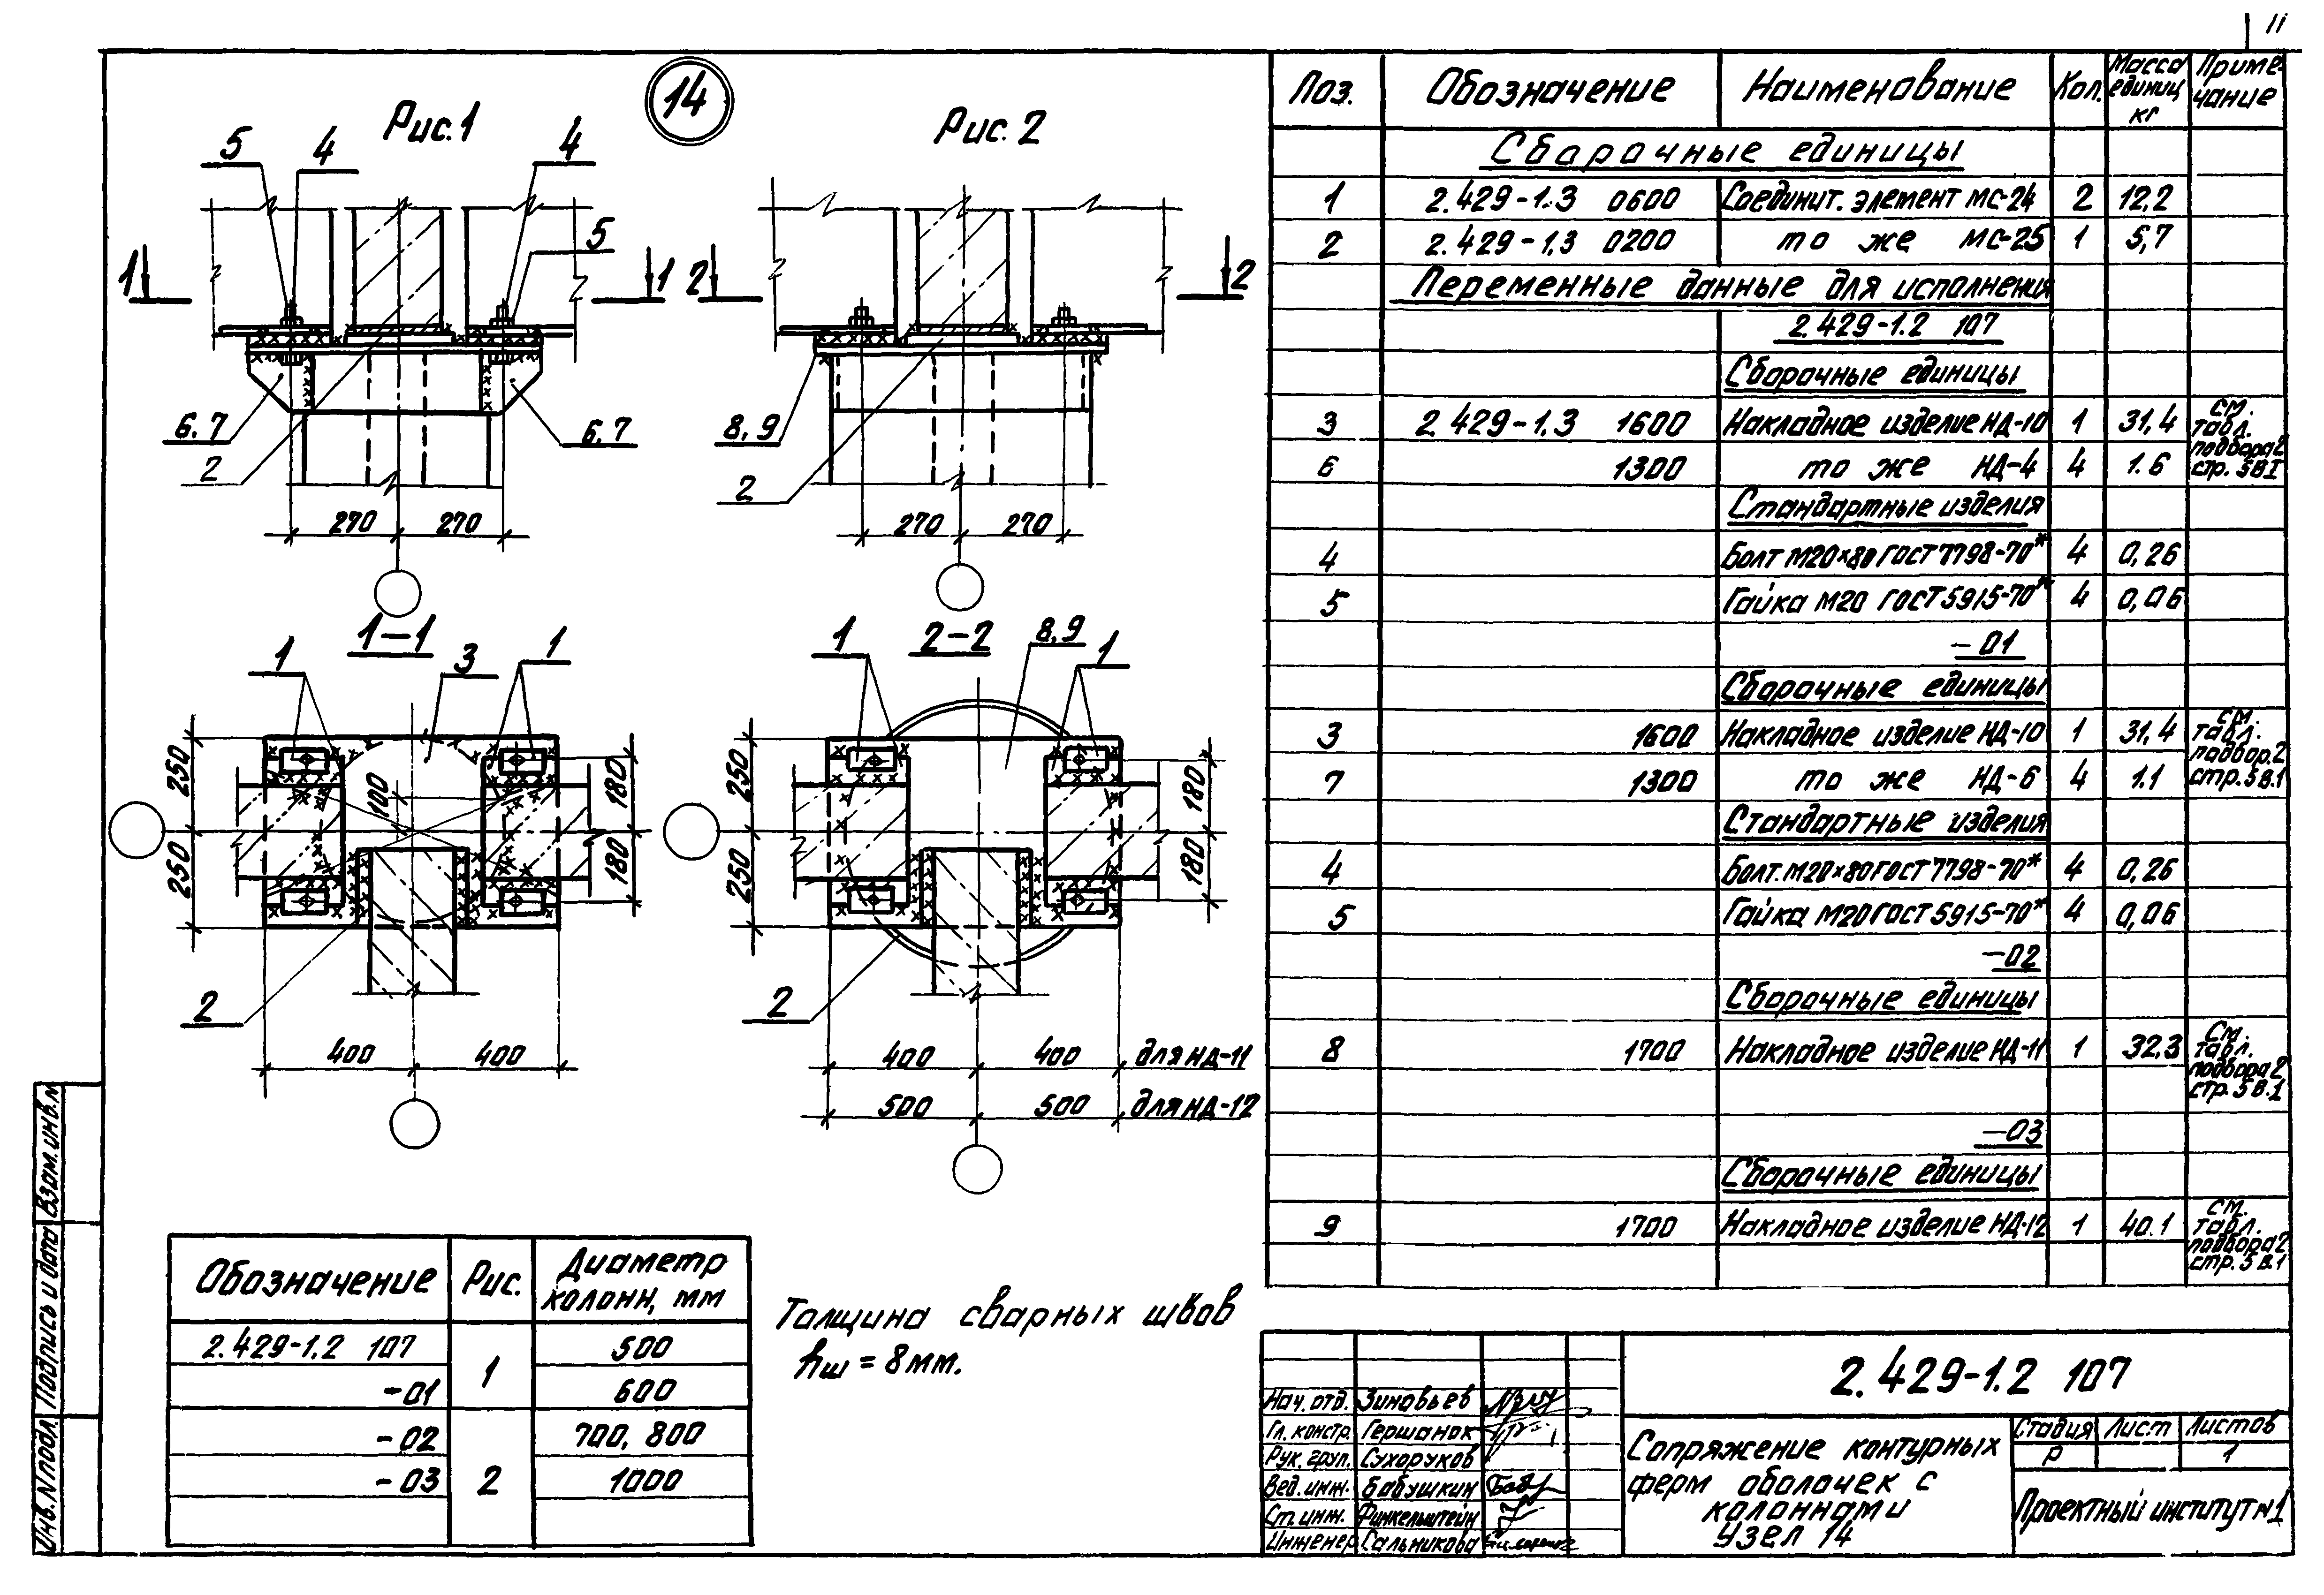 11
14
Рис. 1
5
4
4
5
1
1
6,7
6,7
2
270
270
Рис. 2
2
2
8,9
2
270
270
1-1
1
3
1
250
250
100
180
180
2
400
400
2-2
1
8,9
1
250
250
180
180
2
400
400
для НД-11
500
500
для НД-12
Обозначение Рис. Диаметр колонн, мм
2.429-1.2 107 1 500
-01 600
-02 2 700, 800
-03 1000
Толщина сварных швов
hш = 8мм.
Поз. Обозначение Наименование Кол. Масса единиц кг Примечание
Сборочные единицы
1 2.429-1.3 0600 Соединит. элемент МС-24 2 12,2
2 2.429-1.3 0200 то же МС-25 1 5,7
Переменные данные для исполнения
2.429-1.2 107
Сборочные единицы
3 2.429-1.3 1600 Накладное изделие НД-10 1 31,4 см. табл. подбора 2 стр. 5 в I
6 1300 то же НД-4 4 1.6
Стандартные изделия
4 Болт М20×80 ГОСТ 7798-70* 4 0,26
5 Гайка М20 ГОСТ 5915-70* 4 0,06
-01
Сборочные единицы
3 1600 Накладное изделие НД-10 1 31,4 см. табл. подбор. 2 стр. 5 в.1
7 1300 то же НД-6 4 1.1
Стандартные изделия
4 Болт. М20×80 ГОСТ 7798-70* 4 0,26
5 Гайка М20 ГОСТ 5915-70* 4 0,06
-02
Сборочные единицы
8 1700 Накладное изделие НД-11 1 32,3 См. табл. подбора 2 стр. 5 в.I
-03
Сборочные единицы
9 1700 Накладное изделие НД-12 1 40.1 см. табл. подбора 2 стр. 5 в.1
Нач. отд. Зиновьев
Гл. констр. Гершанок
Рук. груп. Сухоруков
Вед. инж. Бабушкин
Ст. инж. Финкельштейн
Инженер Сальникова
2.429-1.2 107
Сопряжение контурных
ферм оболочек с
колоннами
Узел 14
Стадия Лист Листов
Р 1
Проектный институт №1
Взам. инв. №
Подпись и дата
Инв. № подл.